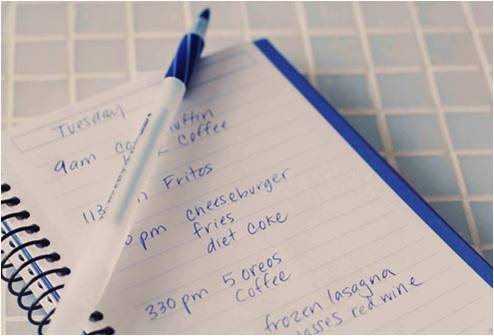 Tuesday
9am
coffee
Fritos
pm cheeseburger
fries
diet coke
330 pm 5 oreos
coffee
frozen lasagna
red wine